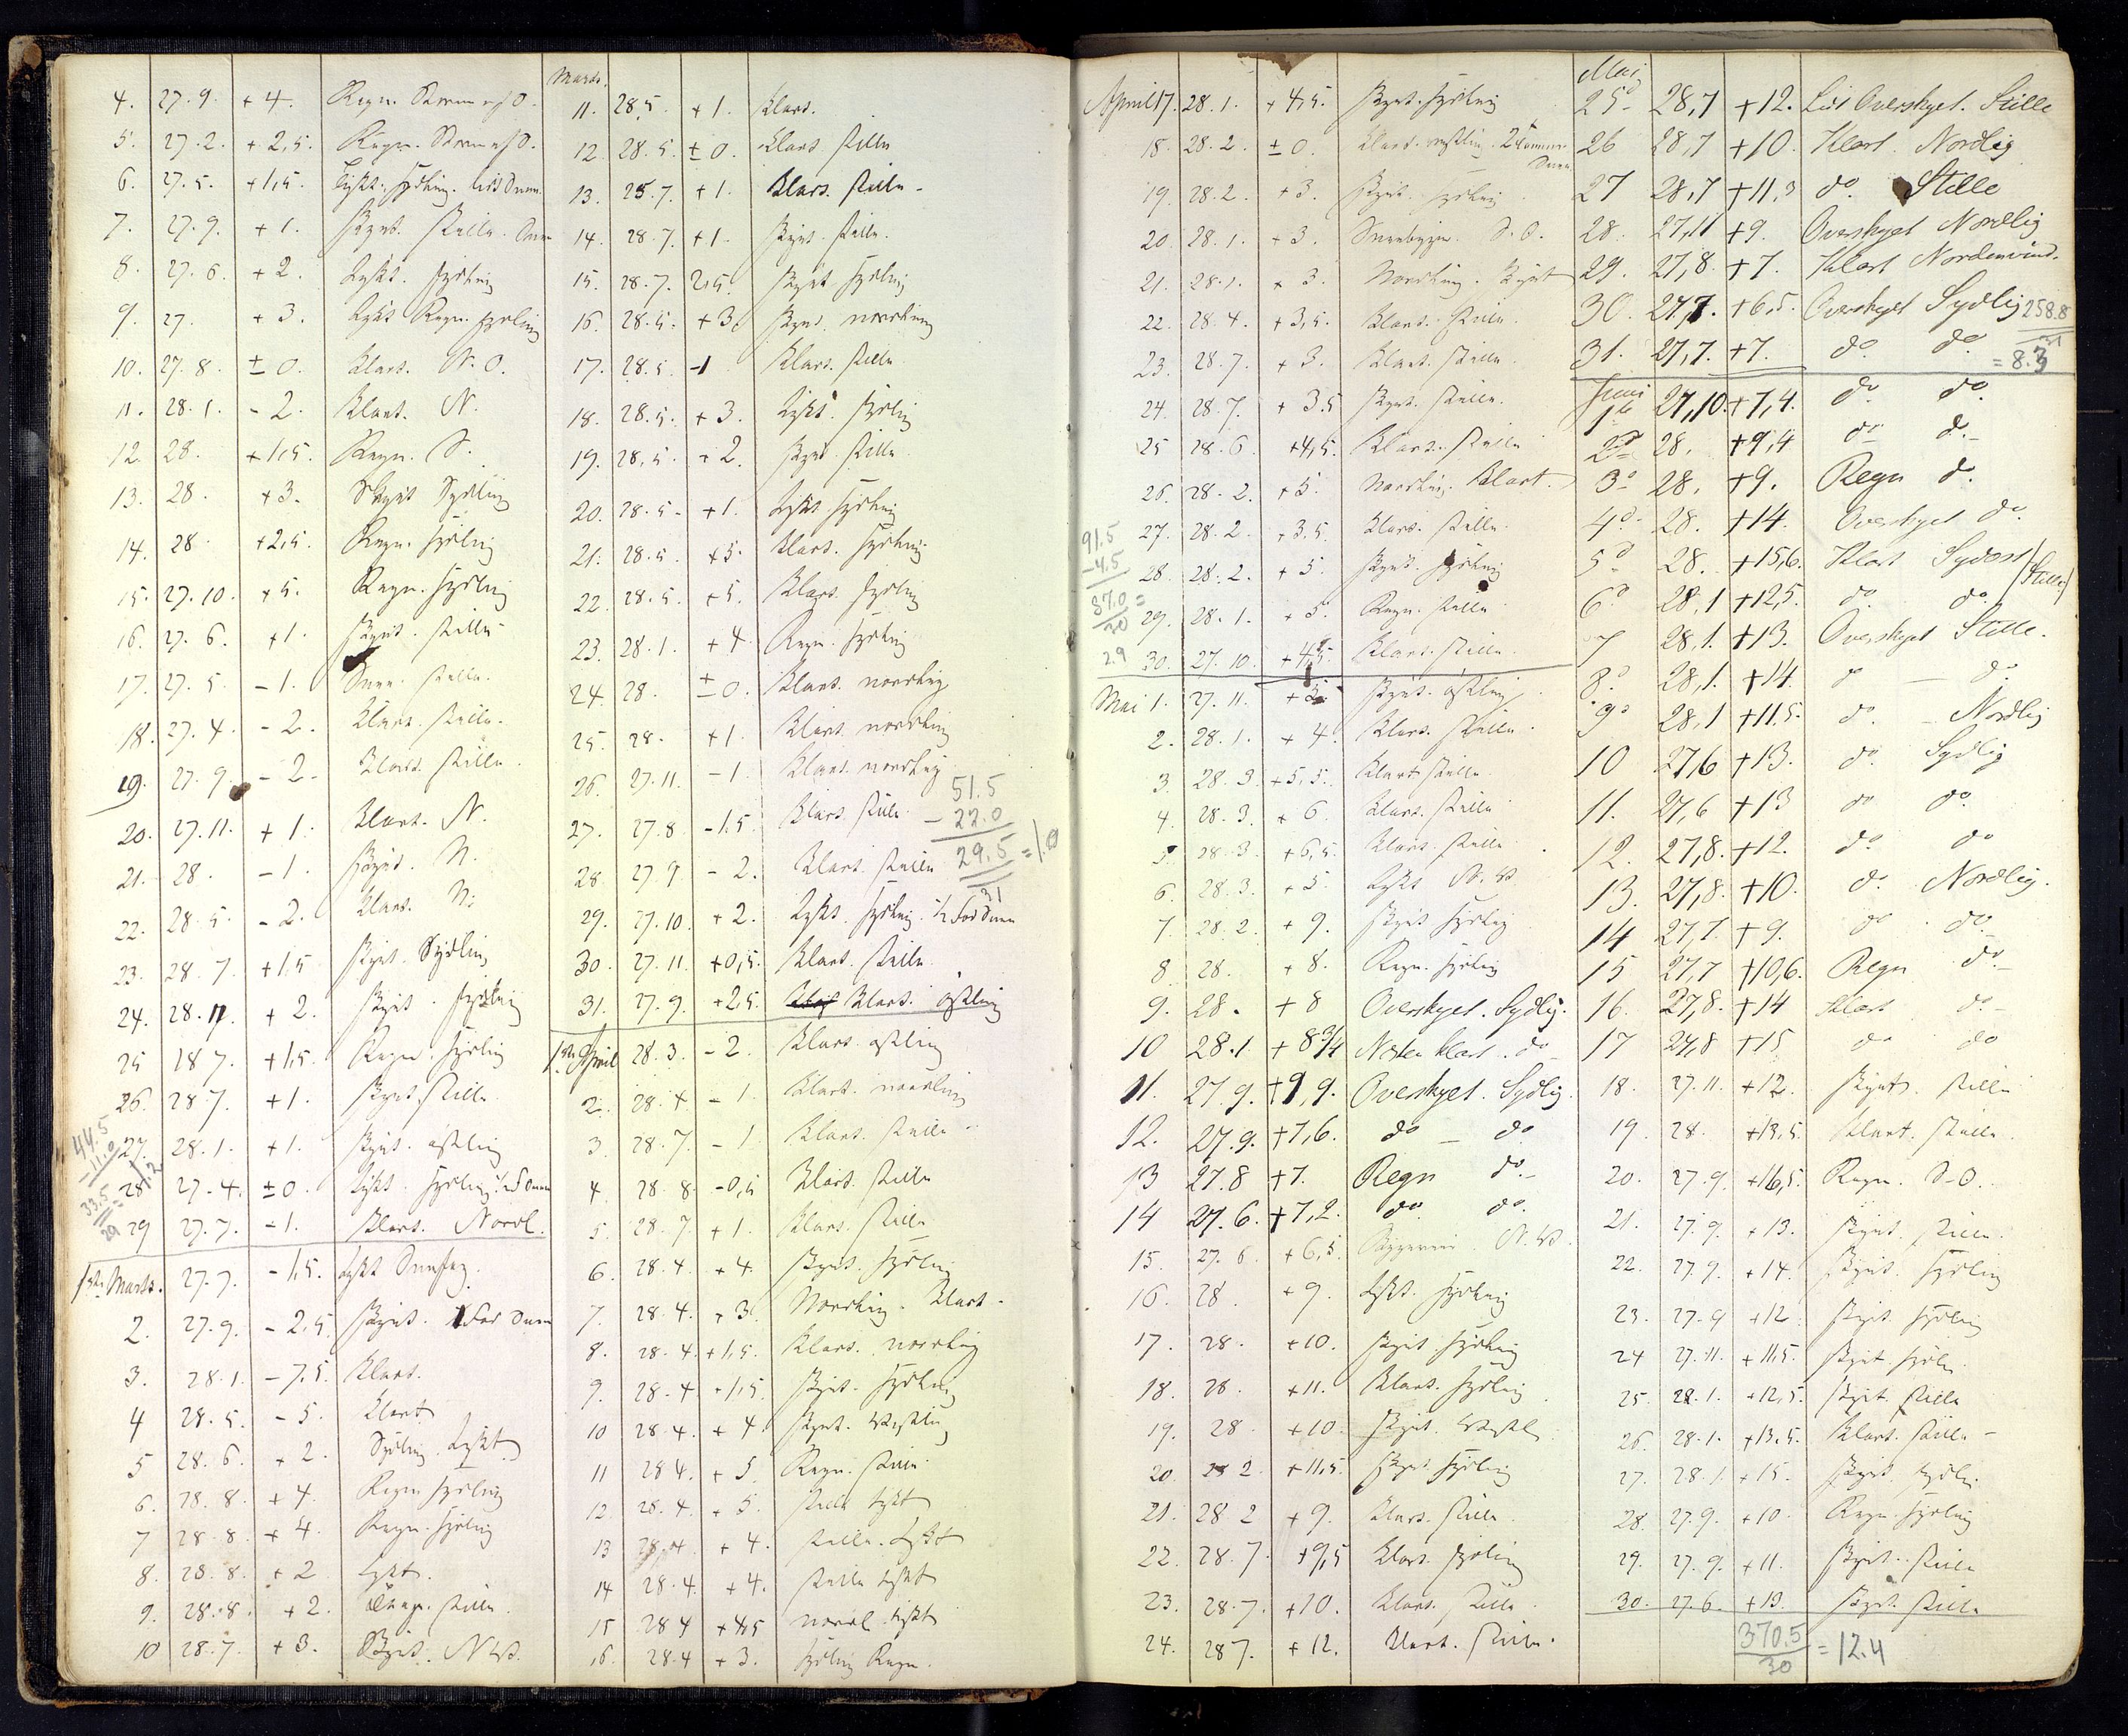 4. 27.9. +4. Regn. Storm af O.
5. 27.2. +2,5. Regn. Storm af O.
6. 27.5. +1,5. Tykt. Sydlig. lidt Snee.
7. 27.9. +1. Skyet. Stille. Snee
8. 27.6. +2. Tykt. Sydlig
9. 27. +3. Tykt Regn. Sydlig
10. 27.8. ±0. Klart. N.O.
11. 28.1. -2. Klart. N.
12. 28. +1,5. Regn. S.
13. 28. +3. Skyet Sydlig
14. 28. +2,5. Regn. Sydlig
15. 27.10. +5. Regn. Sydlig
16. 27.6. +1. Skyet. Stille
17. 27.5. -1. Snee. Stille.
18. 27.4. -2. Klart. Stille.
19. 27.9. -2. Klart. Stille.
20. 27.11. +1. Klart. N.
21. 28. -1. Skyet. N.
22. 28.5. -2. Klart. N.
23. 28.7. +1.5 Skyet. Sydlig
24. 28.11. +2. Skyet. Sydlig
25 28 7. +1,5. Regn. Sydlig
26. 28 7. +1. Skyet. Stille
27. 28.1. +1. Skyet. østlig
28. 27.4. ±0. Tykt. Sydlig ½ F Snee
29 27.7. -1. Klart. Nordl.
44.5
-11.0
33.5 = 1.2
29
1ste Marts. 27.7. -1,5. tykt Sneefog.
2. 27.9. -2,5. Skyet. 1 Fod Snee
3. 28.1. -7,5. Klart.
4 28.5. -5. Klart
5 28.6. +2. Sydlig. Tykt
6. 28.8. +4. Regn Sydlig
7 28.8. +4. Regn. Sydlig
8. 28.8. +2 tykt.
9. 28.8. +2. Stille.
10 28.7. +3. Skyet. NW.
Marts.
11. 28.5. +1. Klart.
12. 28.5. ±0. Klart Stille
13. 28.7. +1. Klart. Stille.
14. 28.7. +1. Skyet. Stille.
15. 28.7. 2,5. Skyet Sydlig
16. 28.5. +3. Skyet. nordlig
17. 28.5. -1 Klart. Stille
18. 28.5. +3. Tykt. Sydlig
19. 28,5. +2. Skyet. Stille
20. 28.5. +1. Tykt Sydlig
21. 28.5. +3. Klart. Sydlig.
22. 28.5. +5. Klart. Sydlig
23. 28.1. +4 Regn. Sydlig
24. 28. ±0. Klart. nordlig
25. 28. +1. Klart. nordlig
26. 27.11. -1. Klart. nordlig
27. 27.8. -1.5. Klart. Stille.
28. 27.9 -2. Klart. Stille
51.5
-22.0
29.5 = 1.0
31
29. 27.10. +2. Tykt. Sydlig. ½ Fod Snee
30. 27.11. +0,5. Klart. Stille.
31. 27.9. +2.5. Klart. østlig
1ste April 28.3. -2. Klart. østlig
2. 28.4 -1. Klart. nordlig
3. 28.7. -1 Klart. Stille.
4. 28 8. -0,5 Klart. Stille
5. 28.7 +1. Klart. Stille
6. 28.4. +4. Skyet. Sydlig
7. 28.4. +3. Nordlig. Klart.
8. 28.4. +1,5. Klart. nordlig
9. 28.4 +1,5. Skyet. Sydlig
10 28.4. +4 Skyet. Vestlig
11 28 4. +5. Regn. Stille.
12. 28.4. +5. Stille tykt
13 28.4 +4. Stille. tykt
14 28.4. +4. Stille tykt
15 28 4 +4,5 nordl. tykt
16. 28.4 +3. Sydlig Regn.
April 17. 28.1. +4,5. Skyet. Sydlig
18. 28.2. ±0. Klart. vestlig. 2 Tommer Snee
19. 28.2. +3. Skyet. Sydlig
20. 28.1. +3. Sneebyger. S.O.
21. 28.1. +3. Nordlig. Skyet
22. 28.4. +3,5. Klart. Stille.
23. 28.7. +3. Klart. Stille.
24. 28.7. +3.5 Skyet. Stille.
25 28.6. +4,5. Klart. Stille
26. 28.2. +5. Nordlig. Klart.
27. 28.2. +3.5. Klart. Stille.
28. 28.2. +5. Skyet. Sydlig
29. 28.1. +5. Regn. Stille.
30. 27.10. +4,5. Klart. Stille.
91.5
-4.5
87.0 =
30
2.9
Mai 1. 27.11. +3. Skyet. østlig
2. 28.1. +4. Klart. Stille.
3. 28.3 +5,5. Klart Stille.
4. 28.3. +6. Klart. Stille
5. 28.3. +6,5. Klart. Stille.
6. 28.3. +5. Tykt N.W.
7. 28.2. +9. Skyet Sydlig
8 28. +8. Regn. Sydlig
9. 28. +8 Overskyet. Sydlig.
10 28.1 +8¾ Næsten klart. do
11. 27.9. +9,9. Overskyet. Sydlig.
12. 27.9. +7,6. do — do
13 27.8 +7. Regn do.
14 27.6. +7,2. do. do.
15. 27.6. +6,5. N.W.
16. 28. +9. tykt. Sydlig
17. 28. +10. Skyet Sydlig
18. 28. +11. Klart. Sydlig
19. 28 +10. Skyet. Vestl.
20. 28 2. +11,5. Skyet Sydlig
21. 28 2 +9. Klart. Stille.
22. 28.7. +9,5 Klart. Sydlig
23. 28.7. +10. Klart. Stille.
24. 28 7. +12. Klart. Stille.
Mai,
25d 28,7 +12. Lidt Overskyet. Stille
26 28,7 +10. Klart. Nordlig
27 28,7 +11,3 do. Stille
28. 27,11 +9. Overskyet Nordlig
29. 27,8. +7. Klart Nordenvind.
30. 27,7. +6,5. Overskyet Sydlig
31. 27,7. +7. do do.
258.8
31
= 8.3
Juni
1ste 27,10. +7,4. do. do.
2d 28. +9,4 do d.
3d 28. +9. Regn d.
4d. 28. +14. Overskyet do.
5d 28. +15,6. Klart Sydost (Stille)
6d 28,1 +12,5. do. do.
7 28,1. +13. Overskyet Stille.
8d 28,1. +14. do — do.
9d 28,1 +11.5. do. — Nordlig
10 27,6 +13. do. Sydlig
11. 27,6 +13 do do.
12. 27,8. +12. do. do
13. 27,8. +10. d. Nordlig.
14 27,7. +9. do do.
15 27,7 +10,6. Regn do.
16. 27,8. +14 Klart do.
17 27,8 +15 do do
18. 27.11. +12. Skyet. Stille
19. 28. +13,5. Klart. Stille.
20. 27.9. +16,5. Regn. S.O.
21. 27.9. +13. Skyet. Stille.
22. 27.9. +14. Skyet. Sydlig
23. 27.9 +12 Skyet. Sydlig
24 27.11. +11,5. Skyet. Sydl.
25. 28.1. +12,5. Skyet. Stille
26. 28.1. +13.5. Klart. Stille
27. 28.1. +15. Skyet. Sydl.
28. 27.9. +10 Regn. Sydlig
29. 27.9. +11. Skyet. Stille
30. 27.6. +13. Skyet. Stille
370.5 = 12.4
30